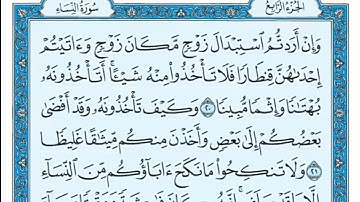 سُورَةُ النِّسَاءِ الجُزْءُ الرَّابِعُ
وَإِنْ أَرَدتُّمُ ٱسْتِبْدَالَ زَوْجٍ مَّكَانَ زَوْجٍ وَءَاتَيْتُمْ
إِحْدَىٰهُنَّ قِنطَارًا فَلَا تَأْخُذُوا۟ مِنْهُ شَيْـًٔا ۚ أَتَأْخُذُونَهُۥ
بُهْتَٰنًا وَإِثْمًا مُّبِينًا ٢٠ وَكَيْفَ تَأْخُذُونَهُۥ وَقَدْ أَفْضَىٰ
بَعْضُكُمْ إِلَىٰ بَعْضٍ وَأَخَذْنَ مِنكُم مِّيثَٰقًا غَلِيظًا
٢١ وَلَا تَنكِحُوا۟ مَا نَكَحَ ءَابَآؤُكُم مِّنَ ٱلنِّسَآءِ